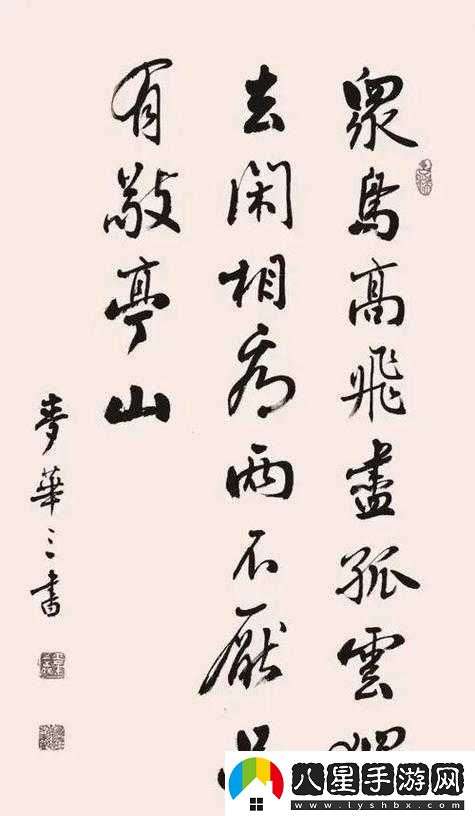 衆鳥高飛盡孤雲
去閑相看兩不厭
有敬亭山
麥華三書
八星手游网
www.lyshbx.com